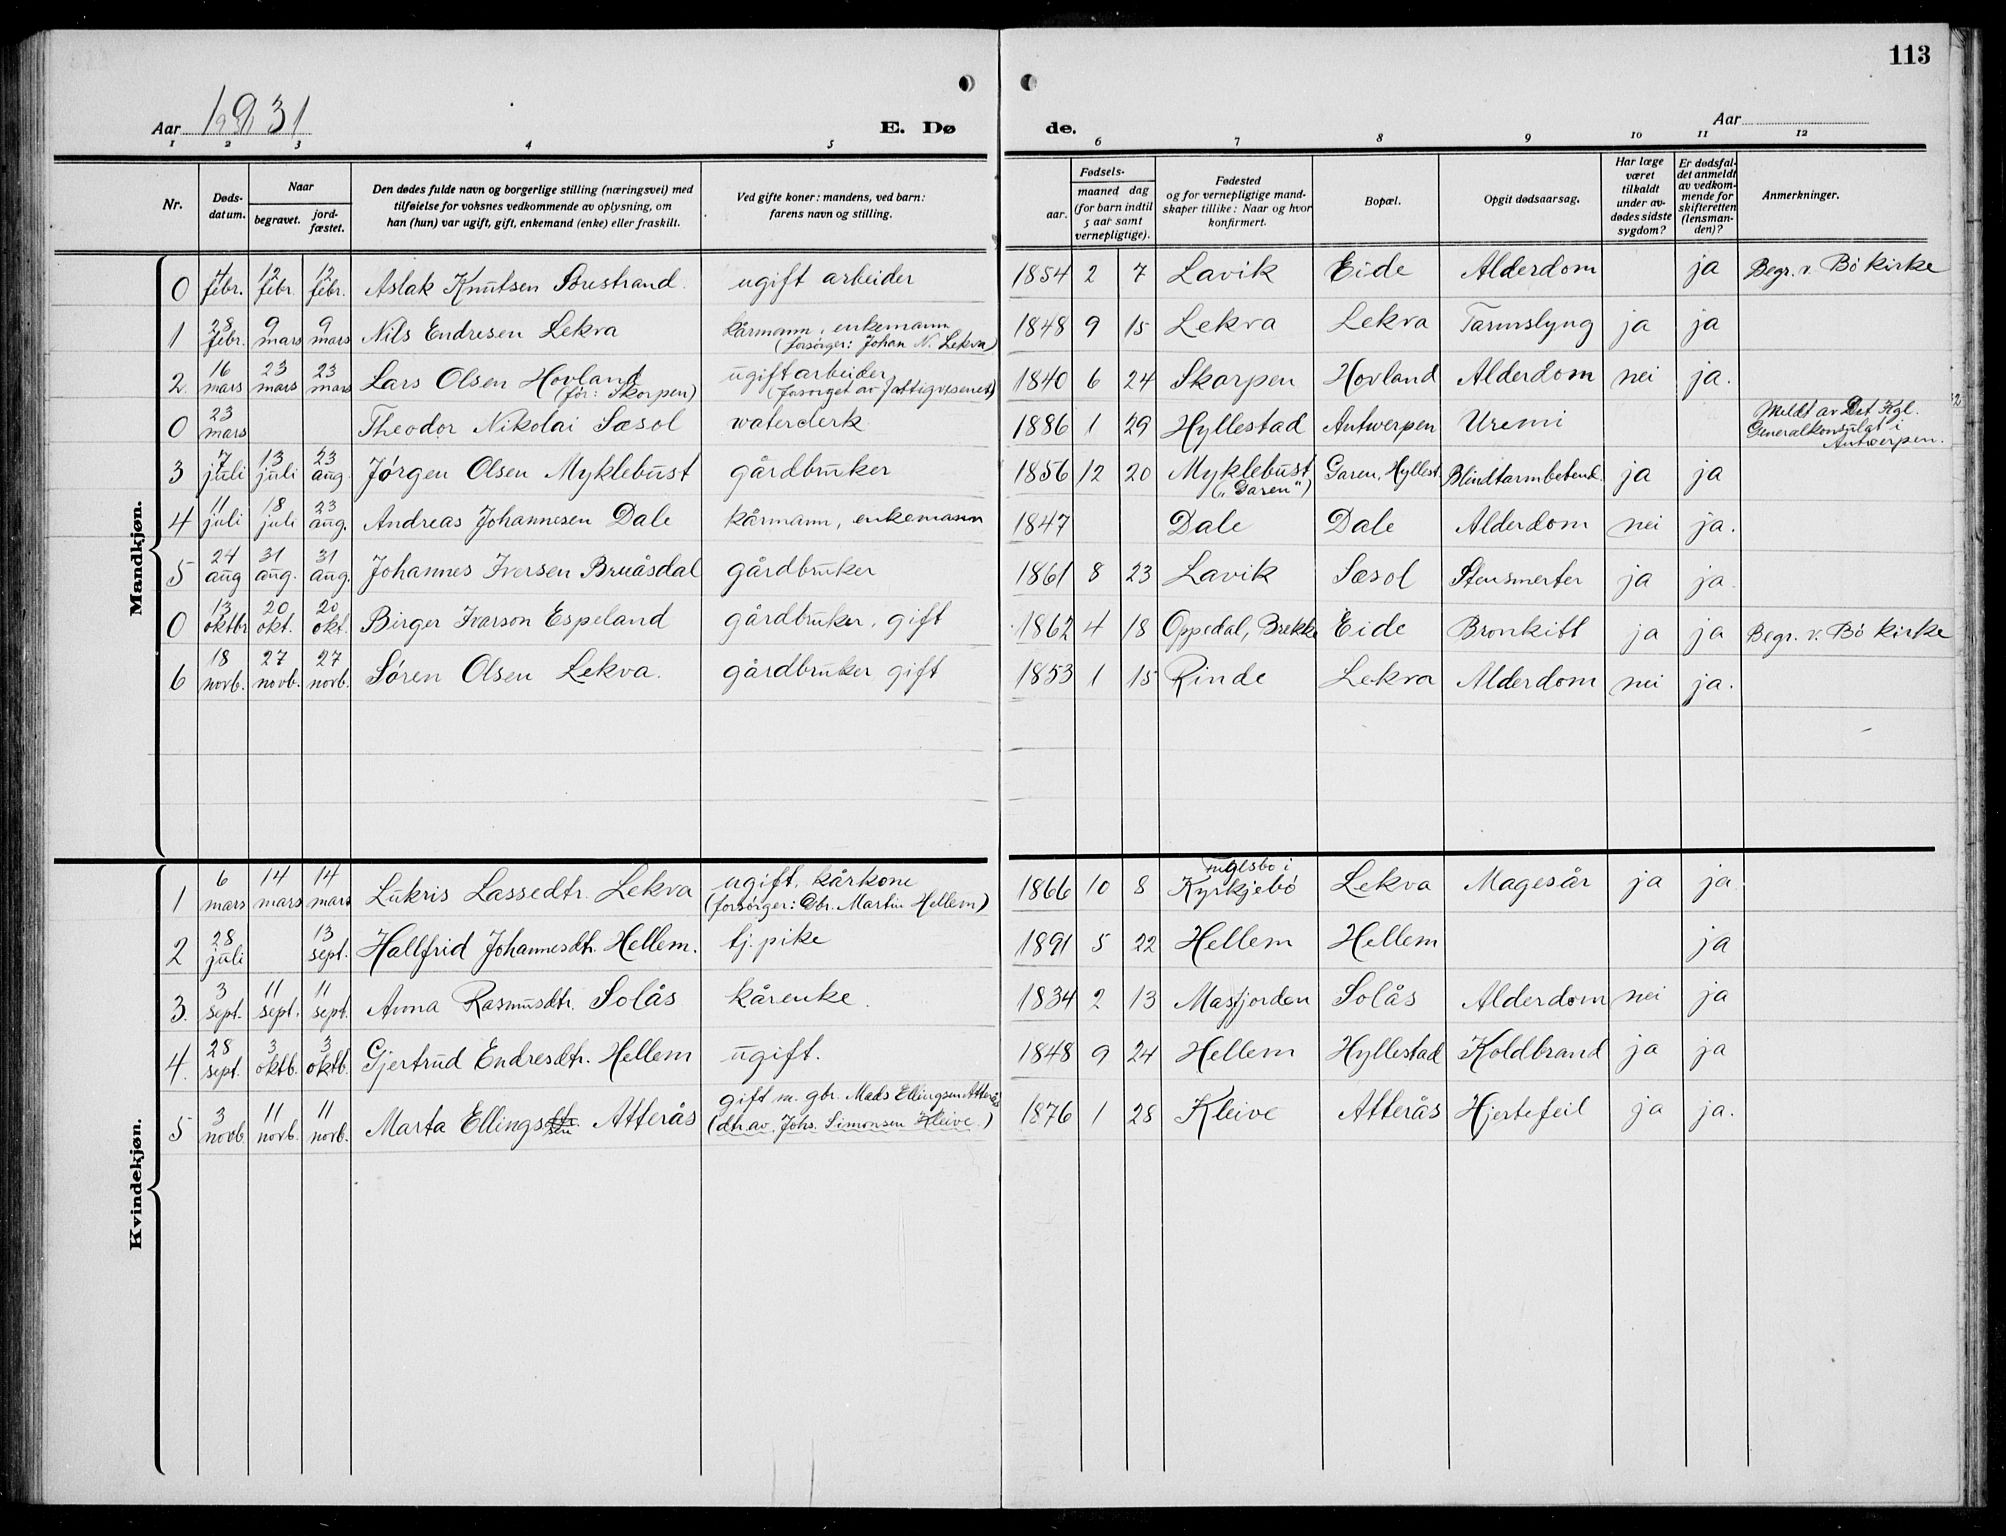 113
Aar 1931
E. Døde.
Aar
1 2 3 4 5 6 7 8 9 10 11 12
Nr. | Døds-datum. | Naar begravet. | jord-fæstet. | Den dødes fulde navn og borgerlige stilling (næringsvei) med tilføielse for voksnes vedkommende av oplysning, om han (hun) var ugift, gift, enkemand (enke) eller fraskilt. | Ved gifte koner: mandens, ved barn: farens navn og stilling. | Fødsels- aar. | maaned | dag (for barn indtil 5 aar samt vernepligtige). | Fødested og for vernepligtige mandskaper tillike: Naar og hvor konfirmert. | Bopæl. | Opgit dødsaarsag. | Har læge været tilkaldt under avdødes sidste sygdom? | Er dødsfaldet anmeldt av vedkommende for skifteretten (lensmanden)? | Anmerkninger.
Mandkjøn.
0 | 4 febr. | 12 febr. | 12 febr. | Aslak Knutsen Sørestrand. | ugift arbeider | 1854 | 2 | 7 | Lavik | Eide | Alderdom | | ja | Begr. v. Bö kirke
1 | 28 febr. | 9 mars | 9 mars | Nils Endresen Lekva | kårmann, enkemann (forsörger: Johan N. Lekva) | 1848 | 9 | 15 | Lekva | Lekva | Tarmslyng | ja | ja
2. | 16 mars | 23 mars | 23 mars | Lars Olsen Hovland (för: Skorpen) | ugift arbeider (forsörget av fattigvesenet) | 1840 | 6 | 24 | Skorpen | Hovland | Alderdom | nei | ja.
0 | 23 mars | | | Theodor Nikolai Sæsol | waterclerk | 1886 | 1 | 29 | Hyllestad | Antwerpen | Uremi | | | Meldt av Det Kgl. Generalkonsulat i Antwerpen.
3 | 7 juli | 13 juli | 23 aug. | Jørgen Olsen Myklebust | gårdbruker | 1856 | 12 | 20 | Myklebust („Garen") | Garen, Hyllest. | Blindtarmbetend. | ja | ja
4 | 11 juli | 18 juli | 23 aug. | Andreas Johannesen Dale | kårmann, enkemann | 1847 | | | Dale | Dale | Alderdom | nei | ja.
5 | 24 aug | 31 aug. | 31 aug. | Johannes Iversen Bruåsdal | gårdbruker | 1861 | 8 | 23 | Lavik | Sæsol | Stensmerter | ja | ja.
0 | 13 oktbr | 20 okt. | 20 okt. | Birger Ivarson Espeland | gårdbruker, gift | 1862 | 4 | 18 | Oppedal, Brekke | Eide | Bronkitt | ja | ja | Begr. v. Bö kirke
6 | 18 novb. | 27 novb. | 27 novb. | Søren Olsen Lekva. | gårdbruker gift | 1853 | 1 | 15 | Rinde | Lekva | Alderdom | nei | ja.
Kvindekjøn.
1 | 6 mars | 14 mars | 14 mars | Lukris Lassedtr. Lekva | ugift, kårkone (forsörger: Gbr. Martin Hellem) | 1866 | 10 | 8 | i Kyrkjebö | Lekva | Magesår | ja | ja
2 | 28 juli | | 13 sept. | Hallfrid Johannesdtr. Hellem. | tj. pike | 1891 | 5 | 22 | Hellem | Hellem | | | ja
3. | 3 sept. | 11 sept. | 11 sept. | Anna Rasmusdtr. Solås | kårenke. | 1834 | 2 | 13 | Masfjorden | Solås | Alderdom | nei | ja
4. | 28 sept. | 3 oktb. | 3 oktb. | Gjertrud Endresdtr. Hellem | ugift. | 1848 | 9 | 24 | Hellem | Hyllestad | Koldbrand | ja | ja
5 | 3 novb | 11 novb. | 11 novb. | Marta Ellingssen Atterås | gift m. gbr. Mads Ellingsen Atterås (dtr. av. Johs. Simonsen Kleive.) | 1876 | 1 | 28 | Kleive | Atterås | Hjertefeil | ja | ja.